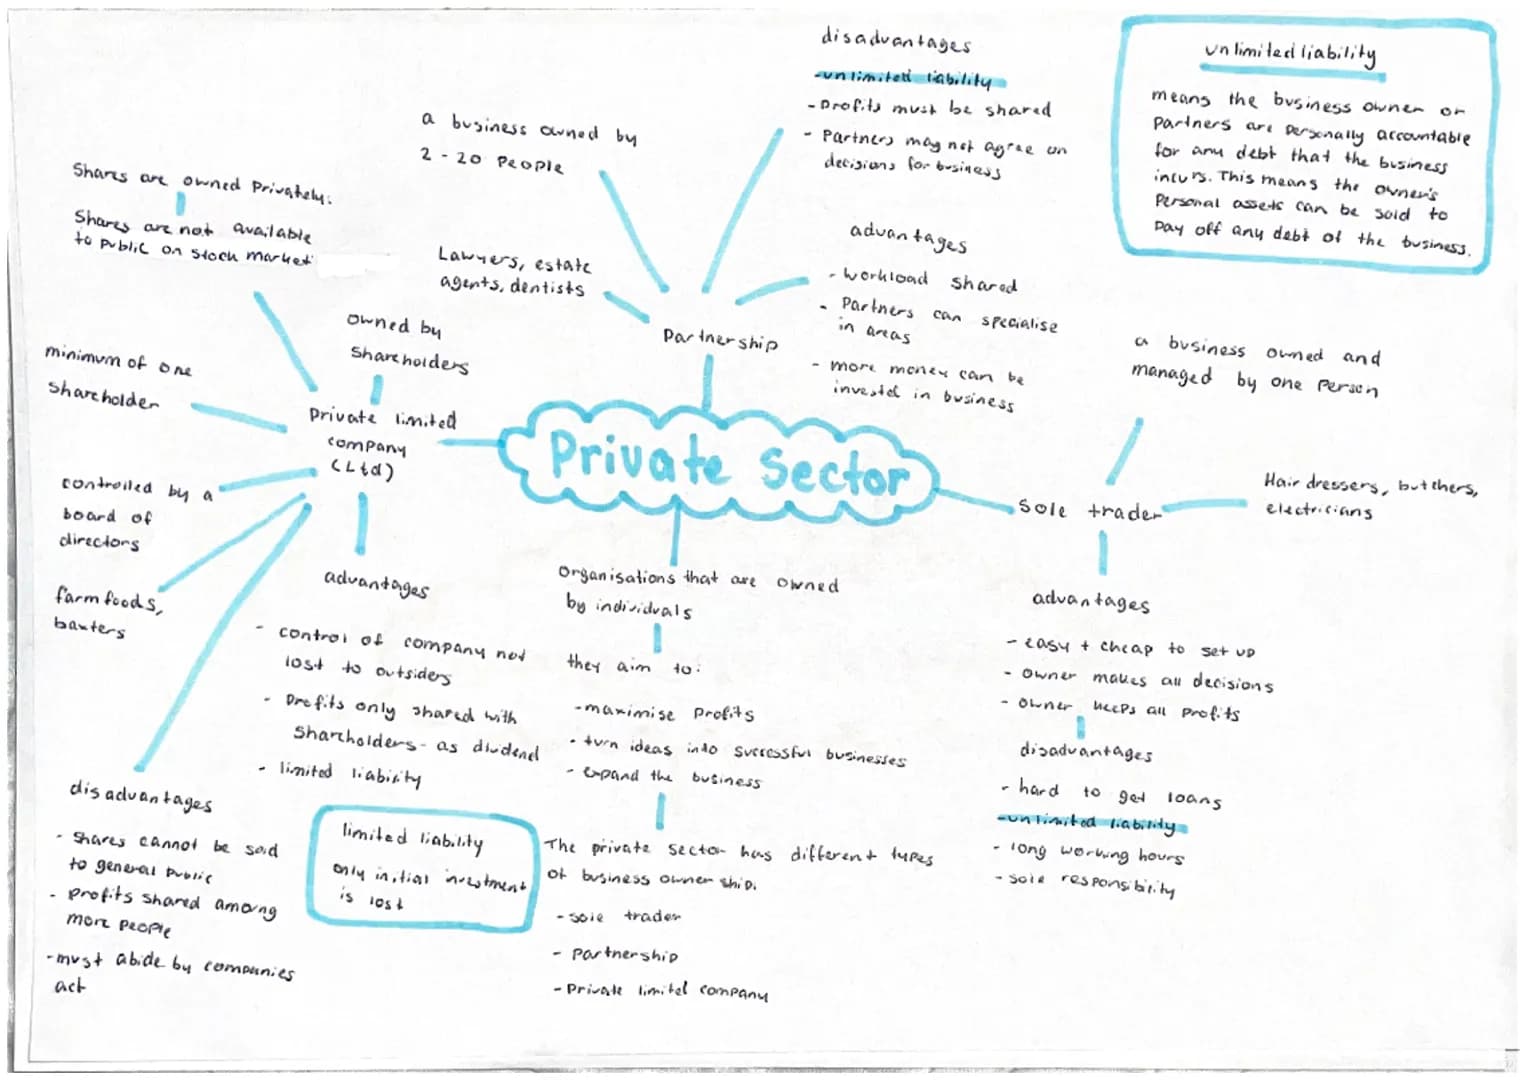 Private Sector
Partnership
a business owned by
2 - 20 people
Lawyers, estate
agents, dentists
disadvantages
-unlimited liability
- profits must be shared
- Partners may not agree on
decisions for business
advantages
- workload shared
- Partners can specialise
in areas
- more money can be
invested in business
unlimited liability
means the business owner or
partners are personally accountable
for any debt that the business
incurs. This means the owner's
personal assets can be sold to
pay off any debt of the business.
sole trader
a business owned and
managed by one person
Hairdressers, butchers,
electricians
advantages
- easy + cheap to set up
- owner makes all decisions
- owner keeps all profits
disadvantages
- hard to get loans
-unlimited liability
- long working hours
- sole responsibility
organisations that are owned
by individuals
they aim to:
-maximise profits
- turn ideas into successful businesses
- expand the business
The private sector has different types
of business ownership.
- sole trader
- partnership
- private limited company
private limited
company
(Ltd)
owned by
shareholders
Shares are owned privately.
Shares are not available
to public on stock market
minimum of one
shareholder
controlled by a
board of
directors
farmfoods,
baxters
advantages
- control of company not
lost to outsiders
- profits only shared with
shareholders- as dividend
- limited liability
limited liability
only initial investment
is lost
disadvantages
- shares cannot be sold
to general public
- profits shared among
more people
-must abide by companies
act